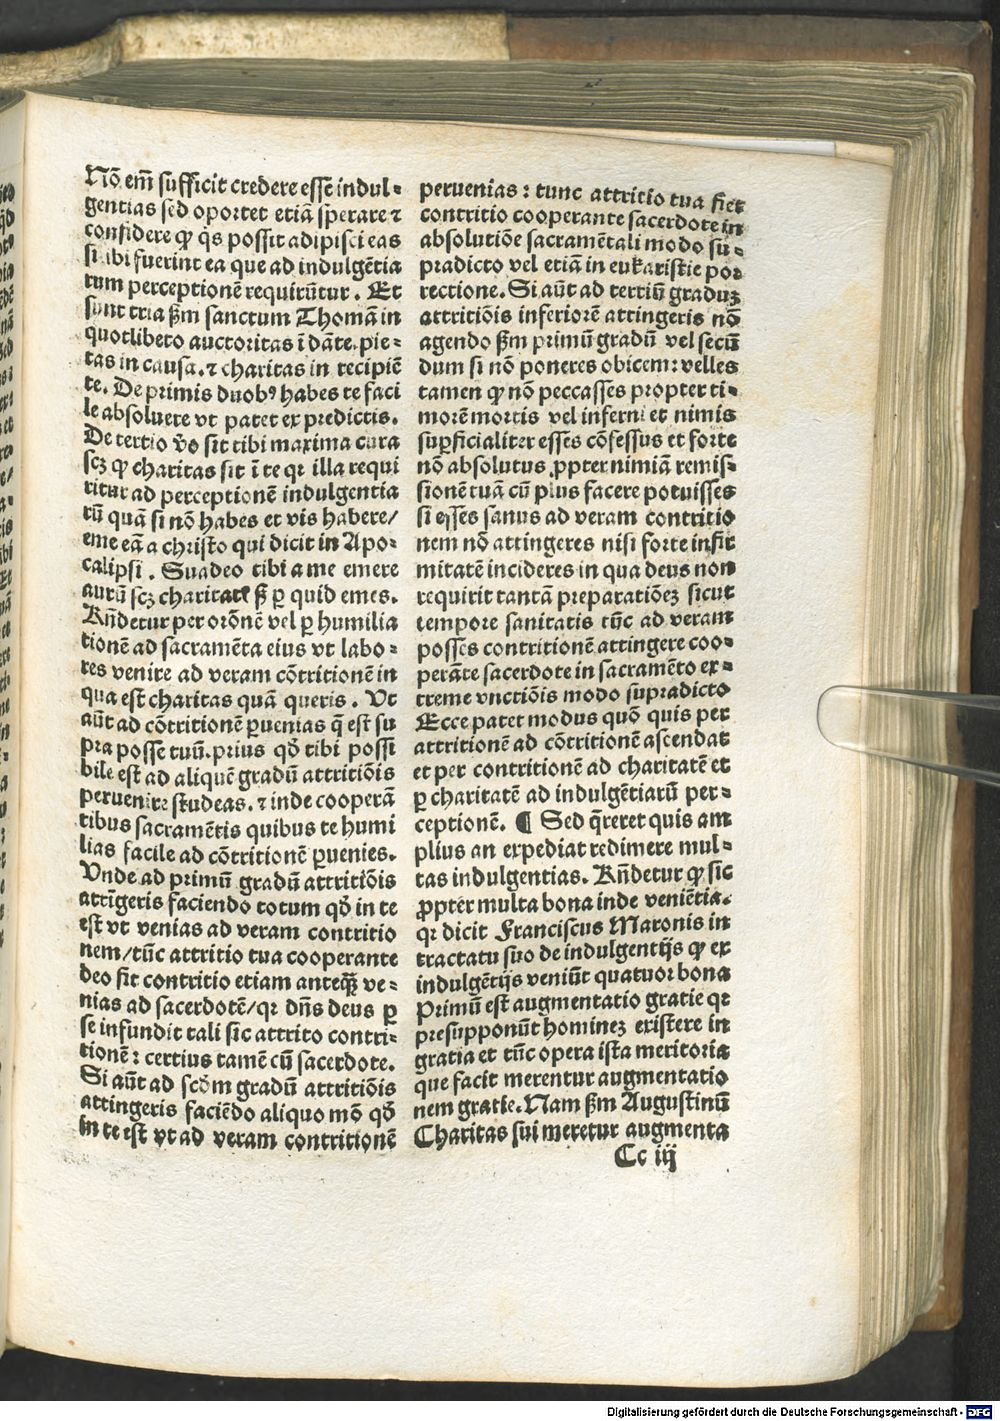 Nõ em̃ sufficit credere esse indul⸗
gentias sed oportet etiã sperare ⁊
confidere ꝙ q̃s possit adipisci eas
si ibi fuerint ea que ad indulgẽtia
rum perceptionẽ requirũtur . Et
sunt tria ẜm sanctum Thomã in
quotlibeto auctoritas ĩ dãte. pie⸗
tas in causa. ⁊ charitas in recipiẽ
te. De primis duobꝰ habes te faci
le absoluere vt patet ex predictis.
De tertio ṽo sit tibi maxima cura
scꝫ ꝙ charitas sit ĩ te qꝛ illa requi
ritur ad perceptionẽ indulgentia
rũ quã si nõ habes et vis habere/
eme eã a christo qui dicit in Apo⸗
calipsi . Suadeo tibi a me emere
aurũ scꝫ charitatẽ ẜ ꝑ quid emes.
Rñdetur per orõnẽ vel ꝑ humilia
tionẽ ad sacramẽta eius vt labo⸗
res venire ad veram cõtritionẽ in
qua est charitas quã queris . Vt
aũt ad cõtritionẽ ꝑuenias q̃ est su
pra posse tuũ. prius qð tibi possi
bile est ad aliquẽ gradũ attritiõis
peruenire studeas. ⁊ inde cooperã
tibus sacramẽtis quibus te humi
lias facile ad cõtritionẽ ꝑuenies.
Vnde ad primũ gradũ attritiõis
attĩgeris faciendo totum qð in te
est vt venias ad veram contritio
nem/tũc attritio tua cooperante
deo fit contritio etiam anteq̃ꝫ ve⸗
nias ad sacerdotẽ/qꝛ dñs deus ꝑ
se infundit tali sic attrito contri⸗
tionẽ: certius tamẽ cũ sacerdote.
Si aũt ad scðm gradũ attritiõis
attingeris faciẽdo aliquo mõ qð
in te est vt ad veram contritionẽ
peruenias : tunc attritio tua fiet
contritio cooperante sacerdote in
absolutiõe sacramẽtali modo su⸗
pradicto vel etiã in eukaristie por
rectione. Si aũt ad tertiũ graduꝫ
attritiõis inferiorẽ attingeris nõ
agendo ẜm primũ gradũ vel secũ
dum si nõ poneres obicem: velles
tamen ꝙ nõ peccasses propter ti⸗
morẽ mortis vel inferni et nimis
suꝑficialiter esses cõfessus et forte
nõ absolutus ꝓpter nimiã remis⸗
sionẽ tuã cũ plus facere potuisses
si esses sanus ad veram contritio
nem nõ attingeres nisi forte infir
mitatẽ incideres in qua deus non
requirit tantã preparatiõeꝫ sicut
tempore sanitatis tũc ad veram
posses contritionẽ attingere coo⸗
perãte sacerdote in sacramẽto ex⸗
treme vnctiõis modo supradicto
Ecce patet modus quõ quis per
attritionẽ ad cõtritionẽ ascendat
et per contritionẽ ad charitatẽ et
ꝑ charitatẽ ad indulgẽtiarũ per⸗
ceptionẽ. ¶ Sed q̃reret quis am
plius an expediat redimere mul⸗
tas indulgentias. Rñdetur ꝙ sic
ꝓpter multa bona inde veniẽtia.
qꝛ dicit Franciscus Maronis in
tractatu suo de indulgentijs ꝙ ex
indulgẽtijs veniũt quatuor bona
Primũ est augmentatio gratie qꝛ
presupponũt homineꝫ existere in
gratia et tũc opera ista meritoria
que facit merentur augmentatio
nem gratie. Nam ẜm Augustinũ
Charitas sui meretur augmenta
Cc iij
Digitalisierung gefördert durch die Deutsche Forschungsgemeinschaft - DFG